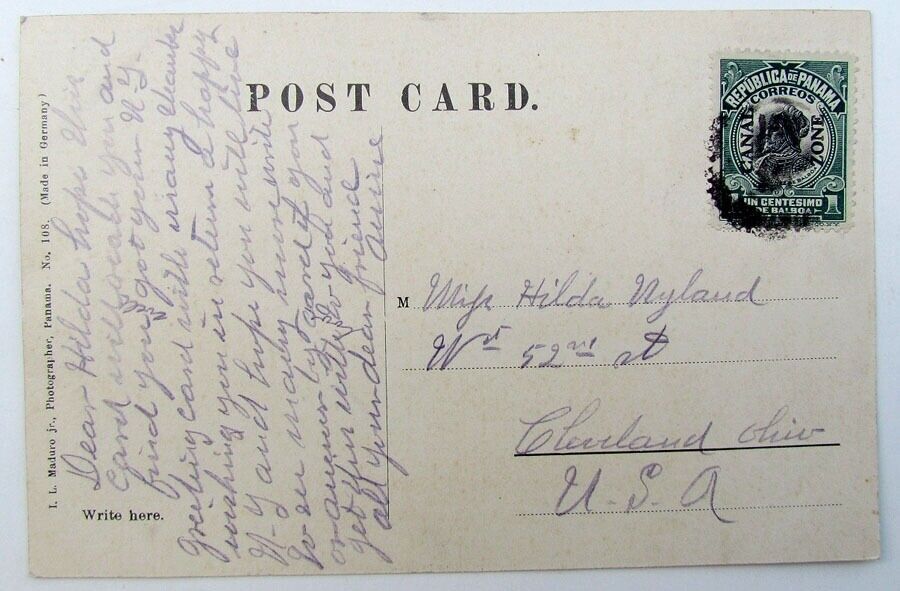 POST CARD.
REPÚBLICA DE PANAMA
CORREOS
CANAL ZONE
1 UN CENTESIMO 1
DE BALBOA
I. L. Maduro jr., Photographer, Panama. No. 108. (Made in Germany)
Write here.
Dear Hilda hope this
card will reach you and
find you got your N-Y
greeting card with many thanks
wishing you in return a happy
N-Y and hope you will live
to see many more write
or answer by card if you
get this with to you and
all your dear friend
Annie
M Miss Hilda Nyland
Wst 52nd st
Cleveland Ohio
U-S-A